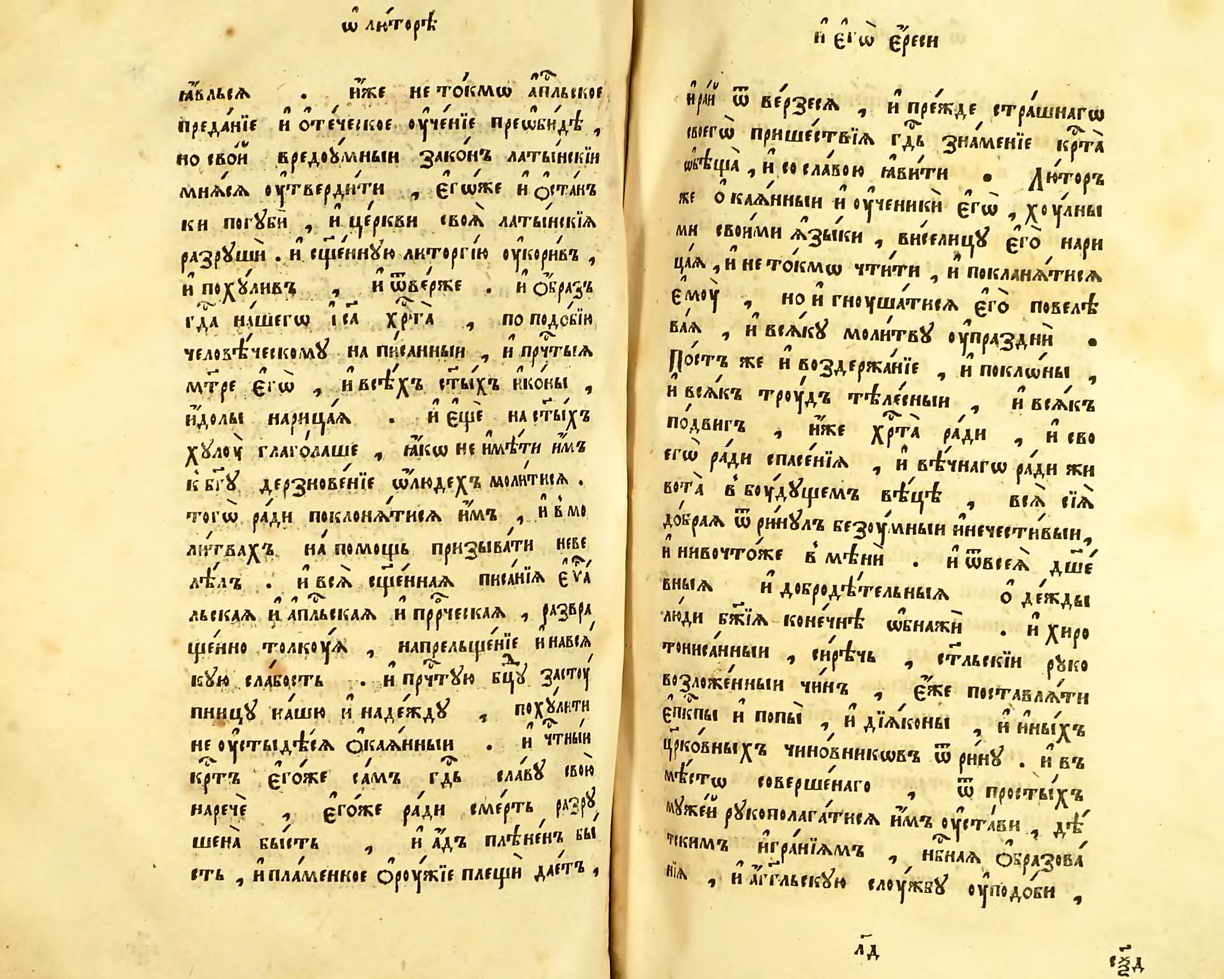 ѡ҆ лю́торѣ
ꙗ҆вльсѧ . и҆́же не то́кмѡ а҆пⷭ҇льское
преда́нїе и҆ ѻ҆те́ческое ᲂу҆че́нїе преѡби́дѣ ,
но сво́й вредоу́мныи зако́нъ латы́нскїи
мнѧ́сѧ ᲂу҆твердѝти , є҆гѡ́же и҆ ѻ҆ста́н
ки погꙋбѝ , и҆ це́ркви своѧ̀ латы́нскїѧ
разрꙋшѝ . и҆ сщ҃е́ннꙋю литоргі́ю ᲂу҆кори́въ ,
и҆ похꙋ́ливъ , и҆ ѿве́рже . и҆ ѻ҆́бразъ
гдⷭ҇а на́шегѡ і҆са хрⷭ҇та̀ , по подо́бїю
человѣ́ческомꙋ написанныи , и҆ прⷱ҇тыѧ
мт҃ре є҆гѡ̀ , и҆ всѣ́хъ ст҃ы́хъ и҆ко́ны ,
и҆́долы нарица́ѧ . и҆ є҆щѐ на ст҃ы́хъ
хꙋлоу̀ глаго́лаше , ꙗ҆́кѡ не и҆мѣ́ти и҆̀мъ
к бг҃ꙋ дерзнове́нїе ѡ҆людехъ моли́тисѧ .
тогѡ̀ ра́ди поклонѧ́тисѧ и҆̀мъ , и҆ в мо
ли́твахъ на́ помощь призыва́ти неве
лѣ́лъ . и҆ всѧ̀ сщ҃е́ннаѧ писа́нїѧ є҆ѵⷢ҇а
льскаѧ и҆ а҆пⷭ҇льскаѧ и҆ прⷪ҇рческаѧ , развра
ще́нно толкоу́ѧ , напрельще́нїе и҆ навсѧ́
кꙋю сла́бость . и҆ прⷱ҇тꙋю бц҃ꙋ застоу́
пницꙋ на́шю и҆ наде́ждꙋ , похꙋ́лити
не ᲂу҆стыдѣ́сѧ ѻ҆каѧ́нныи . и҆ чⷭ҇тны́и
крⷭ҇тъ є҆го́же са́мъ гдⷭ҇ь сла́вꙋ свою̀
наречѐ , є҆го́же ра́ди сме́рть разрꙋ
шена̀ бы́сть , и҆ а҆́дъ плѣне́нъ бы́
сть , и҆ пла́менное ѻ҆роу́жїе плещѝ дае́тъ ,
и҆ є҆гѡ̀ є҆́реси
и҆ ра́й ѿве́рзесѧ , и҆ пре́жде стра́шнагѡ
своегѡ̀ прише́ствїѧ гдⷭ҇ь зна́менїе крⷭ҇та̀
ѡ҆бѣща̀ , и҆ со сла́вою ꙗ҆ви́ти . Лю́торъ
же ѻ҆каѧ́нныи и҆ ᲂу҆ченикѝ є҆гѡ̀ , хоу́лны
ми свои́ми ѧ҆зы́ки , ви́селицꙋ є҆го̀ нари
ца́ѧ , и҆ не то́кмѡ чти́ти , и҆ покланѧ́тисѧ
є҆моу̀ , но и҆ гноуша́тисѧ є҆го̀ повелѣ
ва́ѧ , и҆ всѧ́кꙋ моли́твꙋ ᲂу҆празднѝ .
По́стъ же и҆ воздержа́нїе , и҆ покло́ны ,
и҆ всѧ́къ троу́дъ тѣле́сныи , и҆ всѧ́къ
по́двигъ , и҆́же хрⷭ҇та̀ ра́ди , и҆ сво
егѡ̀ ра́ди спасе́нїѧ , и҆ вѣ́чнагѡ ра́ди жи
вота̀ в боу́дꙋщемъ вѣ́цѣ , всѧ̀ сїѧ̀
до́браѧ ѿрꙋнꙋлъ безоу́мныи и҆нечести́выи ,
и҆ нивочто́же в мѣнѝ . и҆ ѿ всеѧ̀ дш҃е́
вныѧ и҆ добродѣ́тельныѧ ѻ҆де́жды
лю́ди бж҃їѧ коне́чнѣ ѡ҆бнажѝ . и҆ хиро
тониса́нныи , си́рѣчь , ст҃льскїи рꙋко
возложе́нныи чи́нъ , є҆́же поставлѧ́ти
є҆пⷭ҇кпы и҆ попы̀ , и҆ дїѧ́коны , и҆ и҆ны́хъ
цр҃ко́вныхъ чино́вникѡвъ ѿри́нꙋ . и҆ въ
мѣ́стѡ соверше́наго , ѿ просты́хъ
мꙋже́й рꙋкополага́тисѧ и҆̀мъ ᲂу҆ста́ви , дѣ́
тскимъ и҆гра́нїѧмъ , нбⷭ҇наѧ ѻ҆бразова́
нїѧ , и҆ а҆́гг҃льскꙋю слоу́жбꙋ ᲂу҆подо́би ,
л҃д